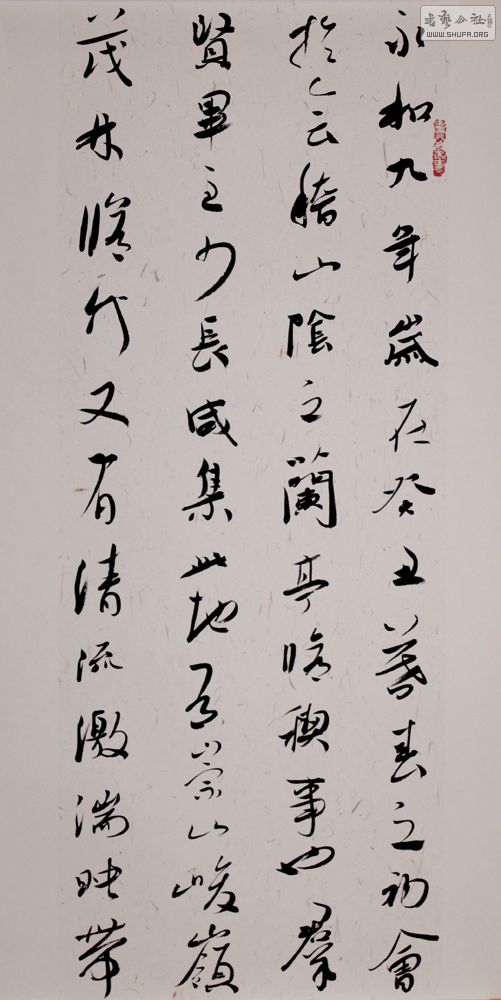 永和九年歲在癸丑暮春之初會
於会稽山陰之蘭亭脩禊事也羣
賢畢至少長咸集此地有崇山峻嶺
茂林脩竹又有清流激湍映帶
書藝公社
WWW.SHUFA.ORG